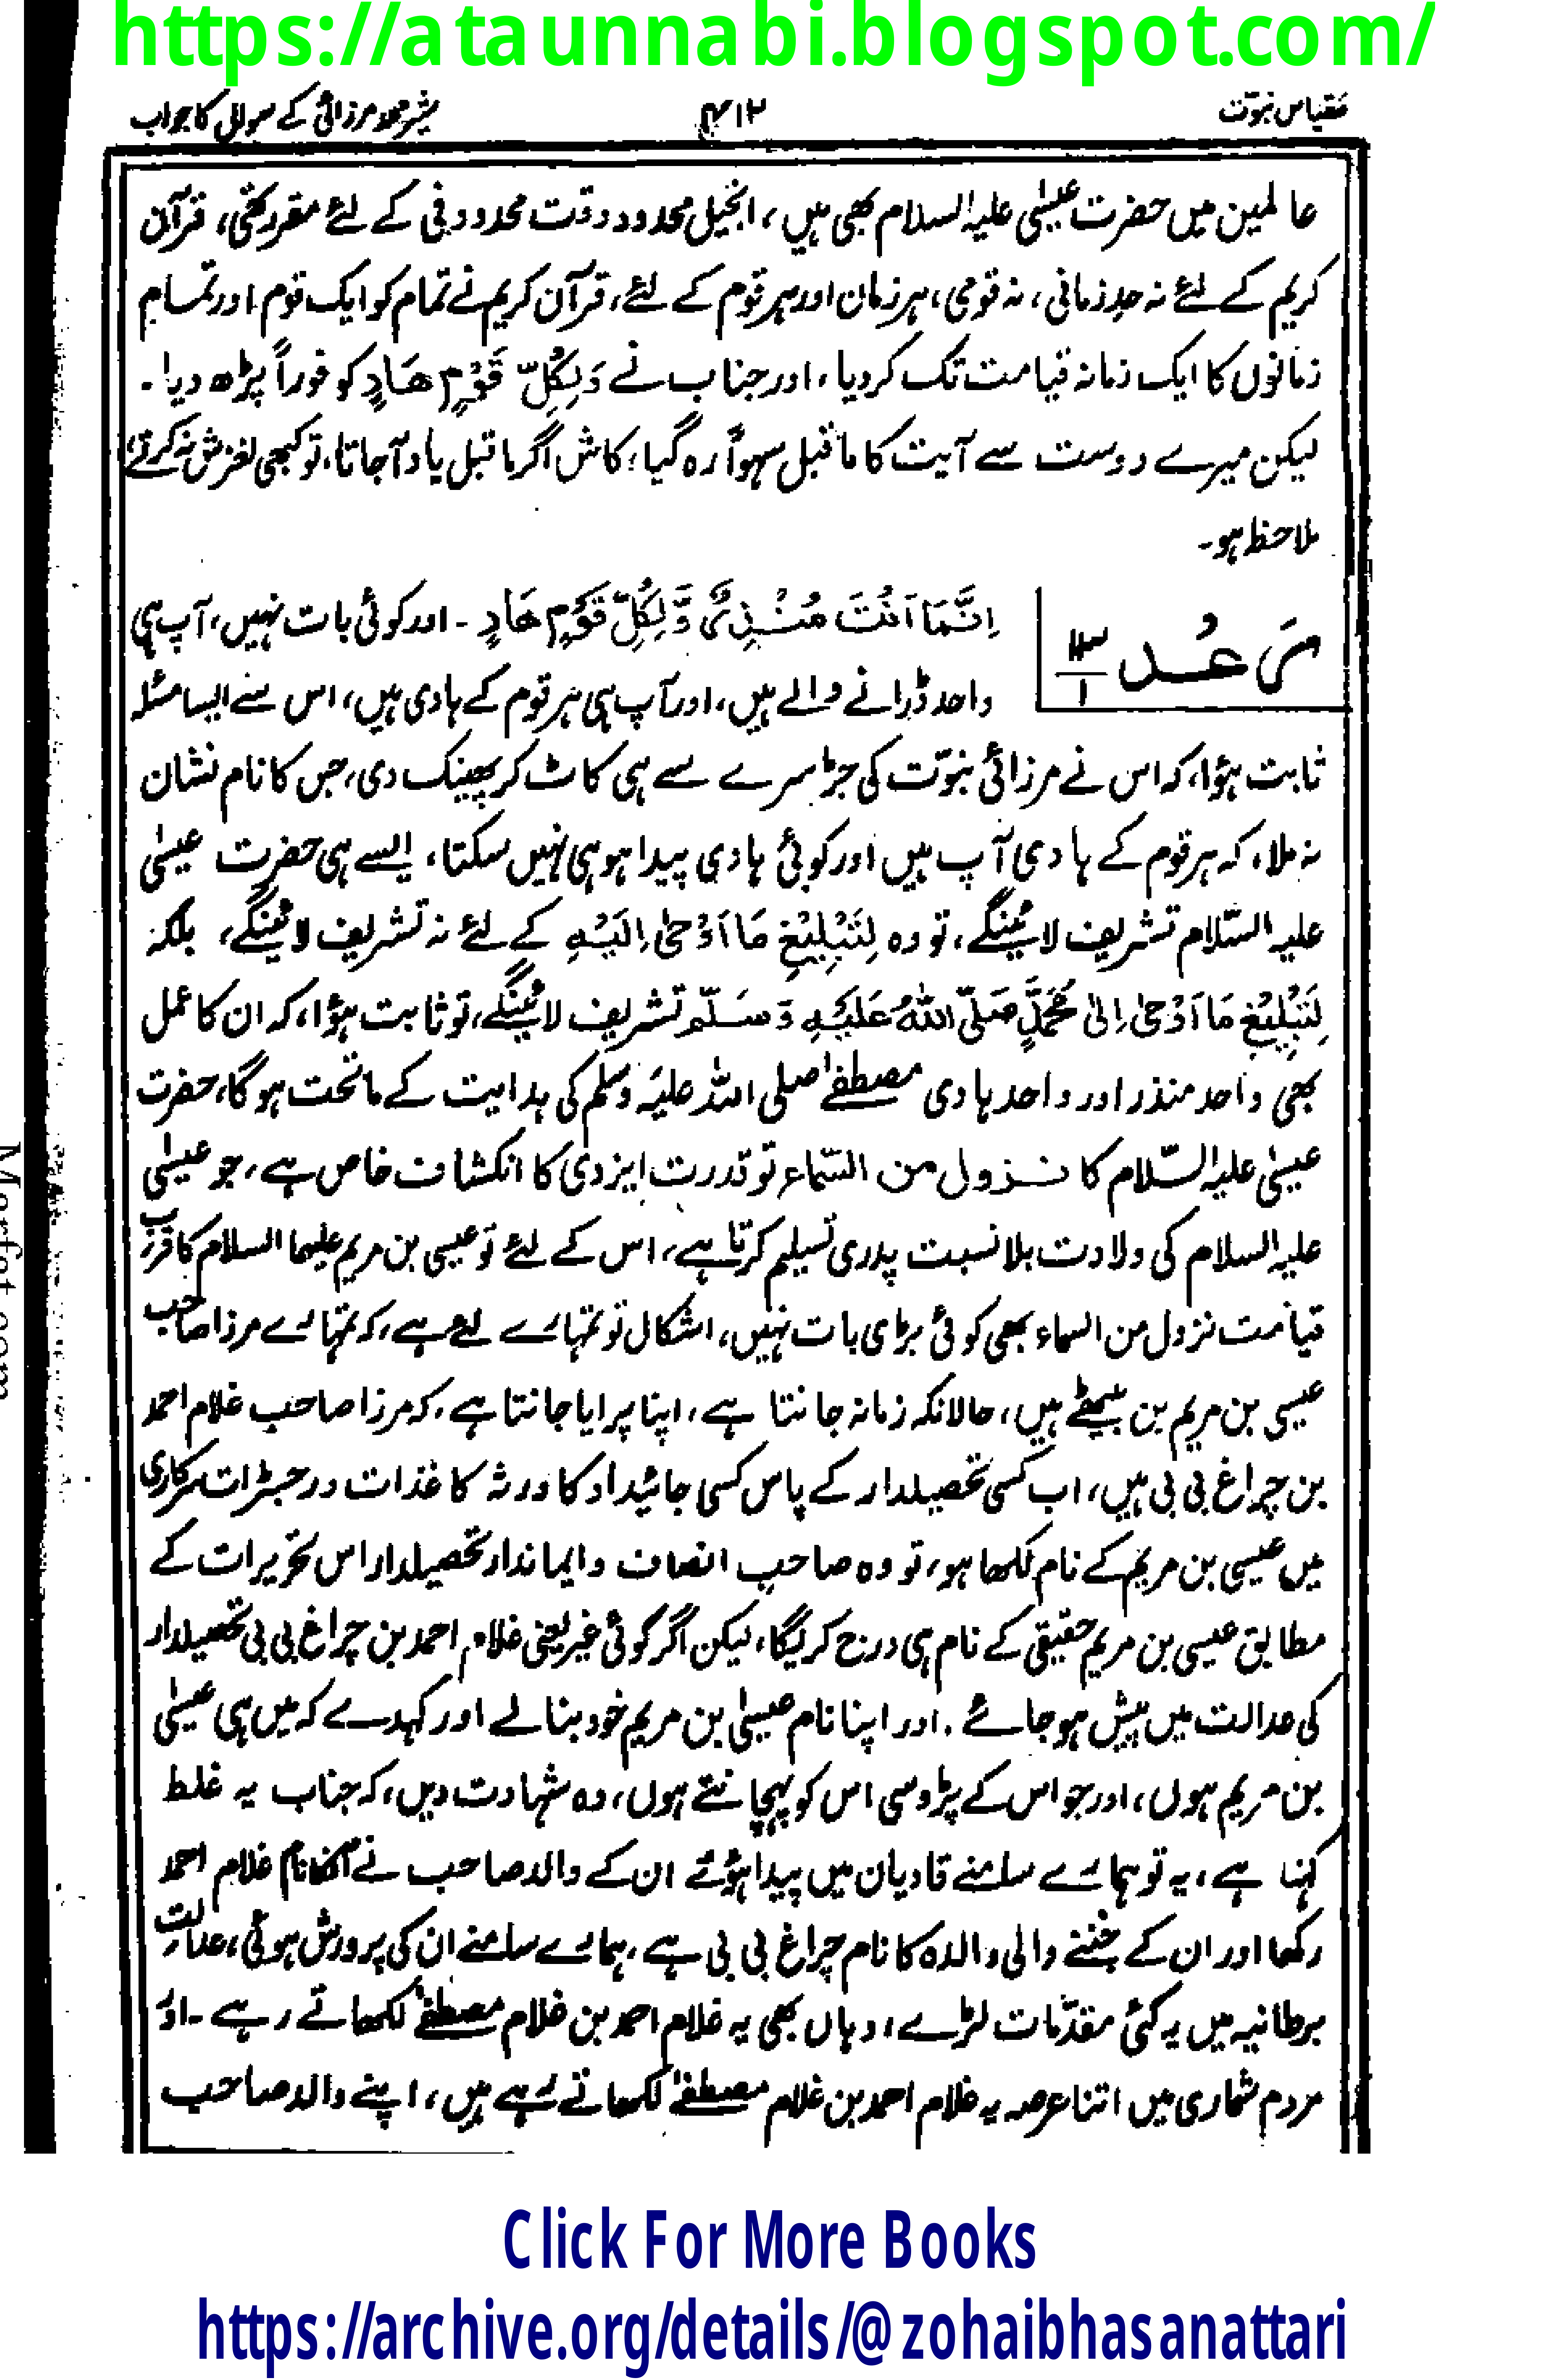 https://ataunnabi.blogspot.com/
مقیاس نبوّت
۴۱۲
بشیر محمد مرزائی کے سوال کا جواب
عالمین میں حضرت عیسیٰ علیہ السلام بھی ہیں، انجیل محدود وقت محدود فی کے لئے مقرر تھی، قرآن
کریم کے لئے نہ حدِ زمانی، نہ قومی، ہر زمان اور ہر قوم کے لئے، قرآن کریم نے تمام کو ایک قوم اور تمام
زمانوں کا ایک زمانہ قیامت تک کر دیا، اور جناب نے وَلِكُلِّ قَوْمٍ هَادٍ کو فوراً پڑھ دیا۔
لیکن میرے دوست سے آیت کا ماقبل سہواً رہ گیا، کاش اگر ماقبل یاد آجاتا، تو کبھی لغزش نہ کرتے،
ملاحظہ ہو۔
رَعد ۱۳/۱
اِنَّمَا اَنْتَ مُنْذِرٌ وَّلِكُلِّ قَوْمٍ هَادٍ ۔ اور کوئی بات نہیں، آپ ہی
واحد ڈرانے والے ہیں، اور آپ ہی ہر قوم کے ہادی ہیں، اس سے ایسا مسئلہ
ثابت ہؤا، کہ اس نے مرزائی نبوّت کی جڑ سرے سے ہی کاٹ کر پھینک دی، جس کا نام نشان
نہ ملا، کہ ہر قوم کے ہادی آپ ہیں اور کوئی ہادی پیدا ہو ہی نہیں سکتا، ایسے ہی حضرت عیسیٰ
علیہ السّلام تشریف لائینگے، تو وہ لِتَبْلِيْغِ مَا اَوْحٰى اِلَيْهِ کے لئے نہ تشریف لائینگے، بلکہ
لِتَبْلِيْغِ مَا اَوْحٰى اِلٰى مُحَمَّدٍ صَلَّى اللهُ عَلَيْهِ وَسَلَّمَ تشریف لائینگے، تو ثابت ہؤا، کہ ان کا عمل
بھی واحد منذر اور واحد ہادی مصطفےٰ صلی اللہ علیہ وسلم کی ہدایت کے ماتحت ہوگا، حضرت
عیسیٰ علیہ السّلام کا نزول من السّماء تو قدرت ایزدی کا انکشاف خاص ہے، جو عیسیٰ
علیہ السلام کی ولادت بلا نسبت پدری تسلیم کرتا ہے، اس کے لئے تو عیسی بن مریم علیہما السلام کا قرب
قیامت نزول من السماء بھی کوئی بڑی بات نہیں، اشکال تو تمہارے لئے ہے، کہ تمہارے مرزا صاحب
عیسی بن مریم بن بیٹھے ہیں، حالانکہ زمانہ جانتا ہے، اپنا پرایا جانتا ہے، کہ مرزا صاحب غلام احمد
بن چراغ بی بی ہیں، اب کسی تحصیلدار کے پاس کسی جائیداد کا ورثہ کاغذات و رجسٹرات سرکاری
میں عیسی بن مریم کے نام لکھا ہو، تو وہ صاحب انصاف و ایماندار تحصیلدار اس تحریرات کے
مطابق عیسی بن مریم حقیقی کے نام ہی درج کریگا، لیکن اگر کوئی غیر یعنی غلام احمد بن چراغ بی بی تحصیلدار
کی عدالت میں پیش ہو جائے، اور اپنا نام عیسیٰ بن مریم خود بنالے اور کہدے کہ میں ہی عیسیٰ
بن مریم ہوں، اور جو اس کے پڑوسی اس کو پہچانتے ہوں، وہ شہادت دیں، کہ جناب یہ غلط
کہتا ہے، یہ تو ہمارے سامنے قادیان میں پیدا ہوئے ان کے والد صاحب نے انکا نام غلام احمد
رکھا اور ان کے جننے والی والدہ کا نام چراغ بی بی ہے، ہمارے سامنے ان کی پرورش ہوئی، عدالت
برطانیہ میں یہ کئی مقدّمات لڑے، وہاں بھی یہ غلام احمد بن غلام مصطفےٰ لکھاتے رہے۔ اور
مردم شماری میں اتنا عرصہ یہ غلام احمد بن غلام مصطفےٰ لکھاتے رہے ہیں، اپنے والد صاحب
Marfat.com
Click For More Books
https://archive.org/details/@zohaibhasanattari